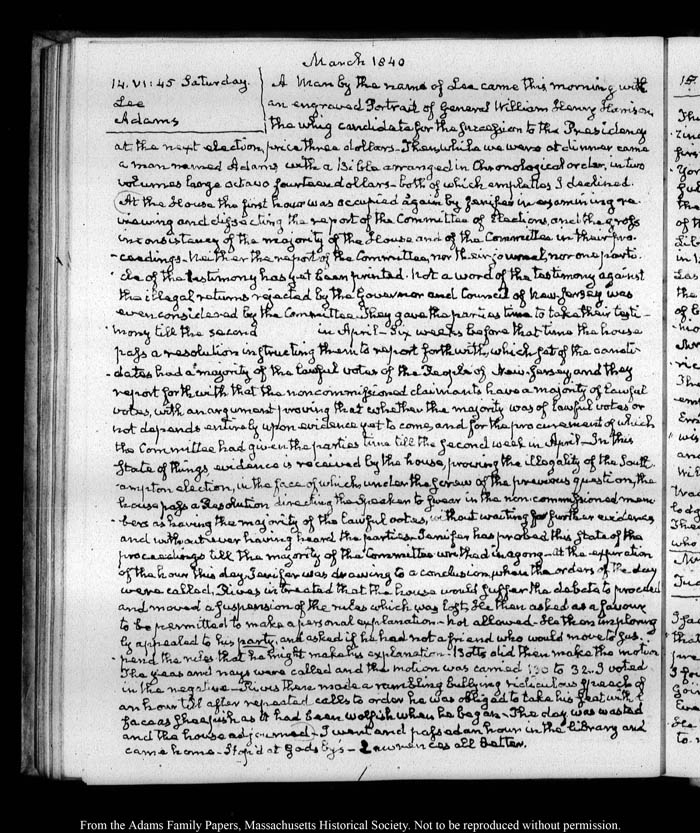 March 1840
14. VI:45 Saturday.
Lee
Adams
A Man by the name of Lee came this morning with
an engraved Portrait of General William Henry Harrison,
the whig candidate for the succession to the Presidency
at the next election, price three dollars - Then while we were at dinner came
a man named Adams with a Bible arranged in Chronological order, in two
volumes large octavo fourteen dollars - both of which I declined.
At the House the first hour was occupied again by Jenifer in examining re-
viewing and dissecting the report of the Committee of Elections, and the gross
inconsistency of the majority of the House and of the Committee in their pro-
-ceedings. Neither the report of the Committee, nor their journal, nor one parti-
cle of the testimony has yet been printed. Not a word of the testimony against
the illegal returns rejected by the Governor and Council of New Jersey was
even considered by the Committee. They gave the parties time to take their testi-
mony till the second in April - Six weeks before that time the house
pass a resolution instructing them to report forthwith, which set of the candi-
-dates had a majority of the lawful votes of the People of New-Jersey, and they
report forthwith that the noncommissioned claimants have a majority of lawful
votes, with an argument proving that whether the majority was of lawful votes or
not depends entirely upon evidence yet to come, and for the procurement of which
the Committee had given the parties time till the second week in April - In this
State of things, evidence is received by the house, proving the illegality of the South-
ampton election, in the face of which, under the screw of the previous question, the
house pass a Resolution directing the Speaker to swear in the non-commissioned mem-
-bers as having the majority of the lawful votes, without waiting for further evidence,
and without ever having heard the parties. Jenifer has probed this State of the
proceedings till the majority of the Committee writhed in agony - at the expiration
of the hour this day Jenifer was drawing to a conclusion, when the orders of the day
were called. Rives intreated that the house would suffer the debate to proceed
and moved a suspension of the rules which was lost. He then asked as a favour
to be permitted to make a personal explanation - not allowed. He then imploring-
ly appealed to his party, and asked if he had not a friend who would move to sus-
-pend the rules that he might make his explanation. Botts did then make the motion
The yeas and nays were called and the motion was carried 130 to 32. I voted
in the negative - Rives then made a rambling bullying ridiculous speech of
an hour till after repeated calls to order he was obliged to take his seat with a
face as sheepish as it had been wolfish when he began - The day was wasted
and the house adjourned - I went and passed an hour in the library and
came home - Stop'd at Gadsby's - Lawrences all better.
From the Adams Family Papers, Massachusetts Historical Society. Not to be reproduced without permission.